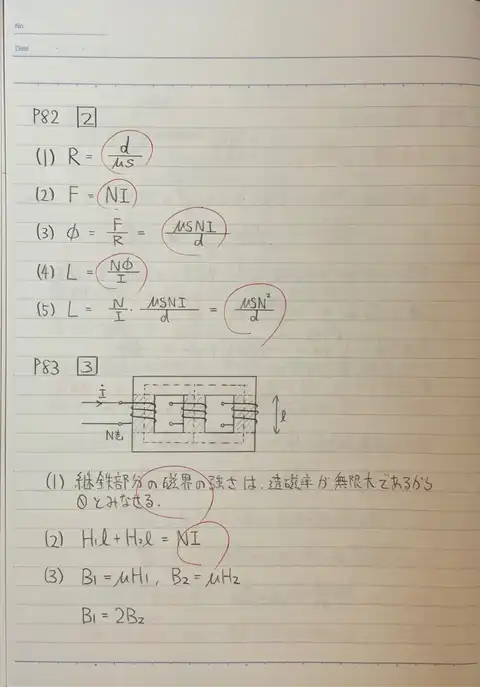 No.
Date
P82 2
(1) R = d/μS
(2) F = NI
(3) φ = F/R = μSNI/d
(4) L = Nφ/I
(5) L = N/I · μSNI/d = μSN²/d
P83 3
İ
N巻
l
(1) 継鉄部分の磁界の強さは、透磁率が無限大であるから
0とみなせる.
(2) H₁l + H₂l = NI
(3) B₁ = μH₁, B₂ = μH₂
B₁ = 2B₂